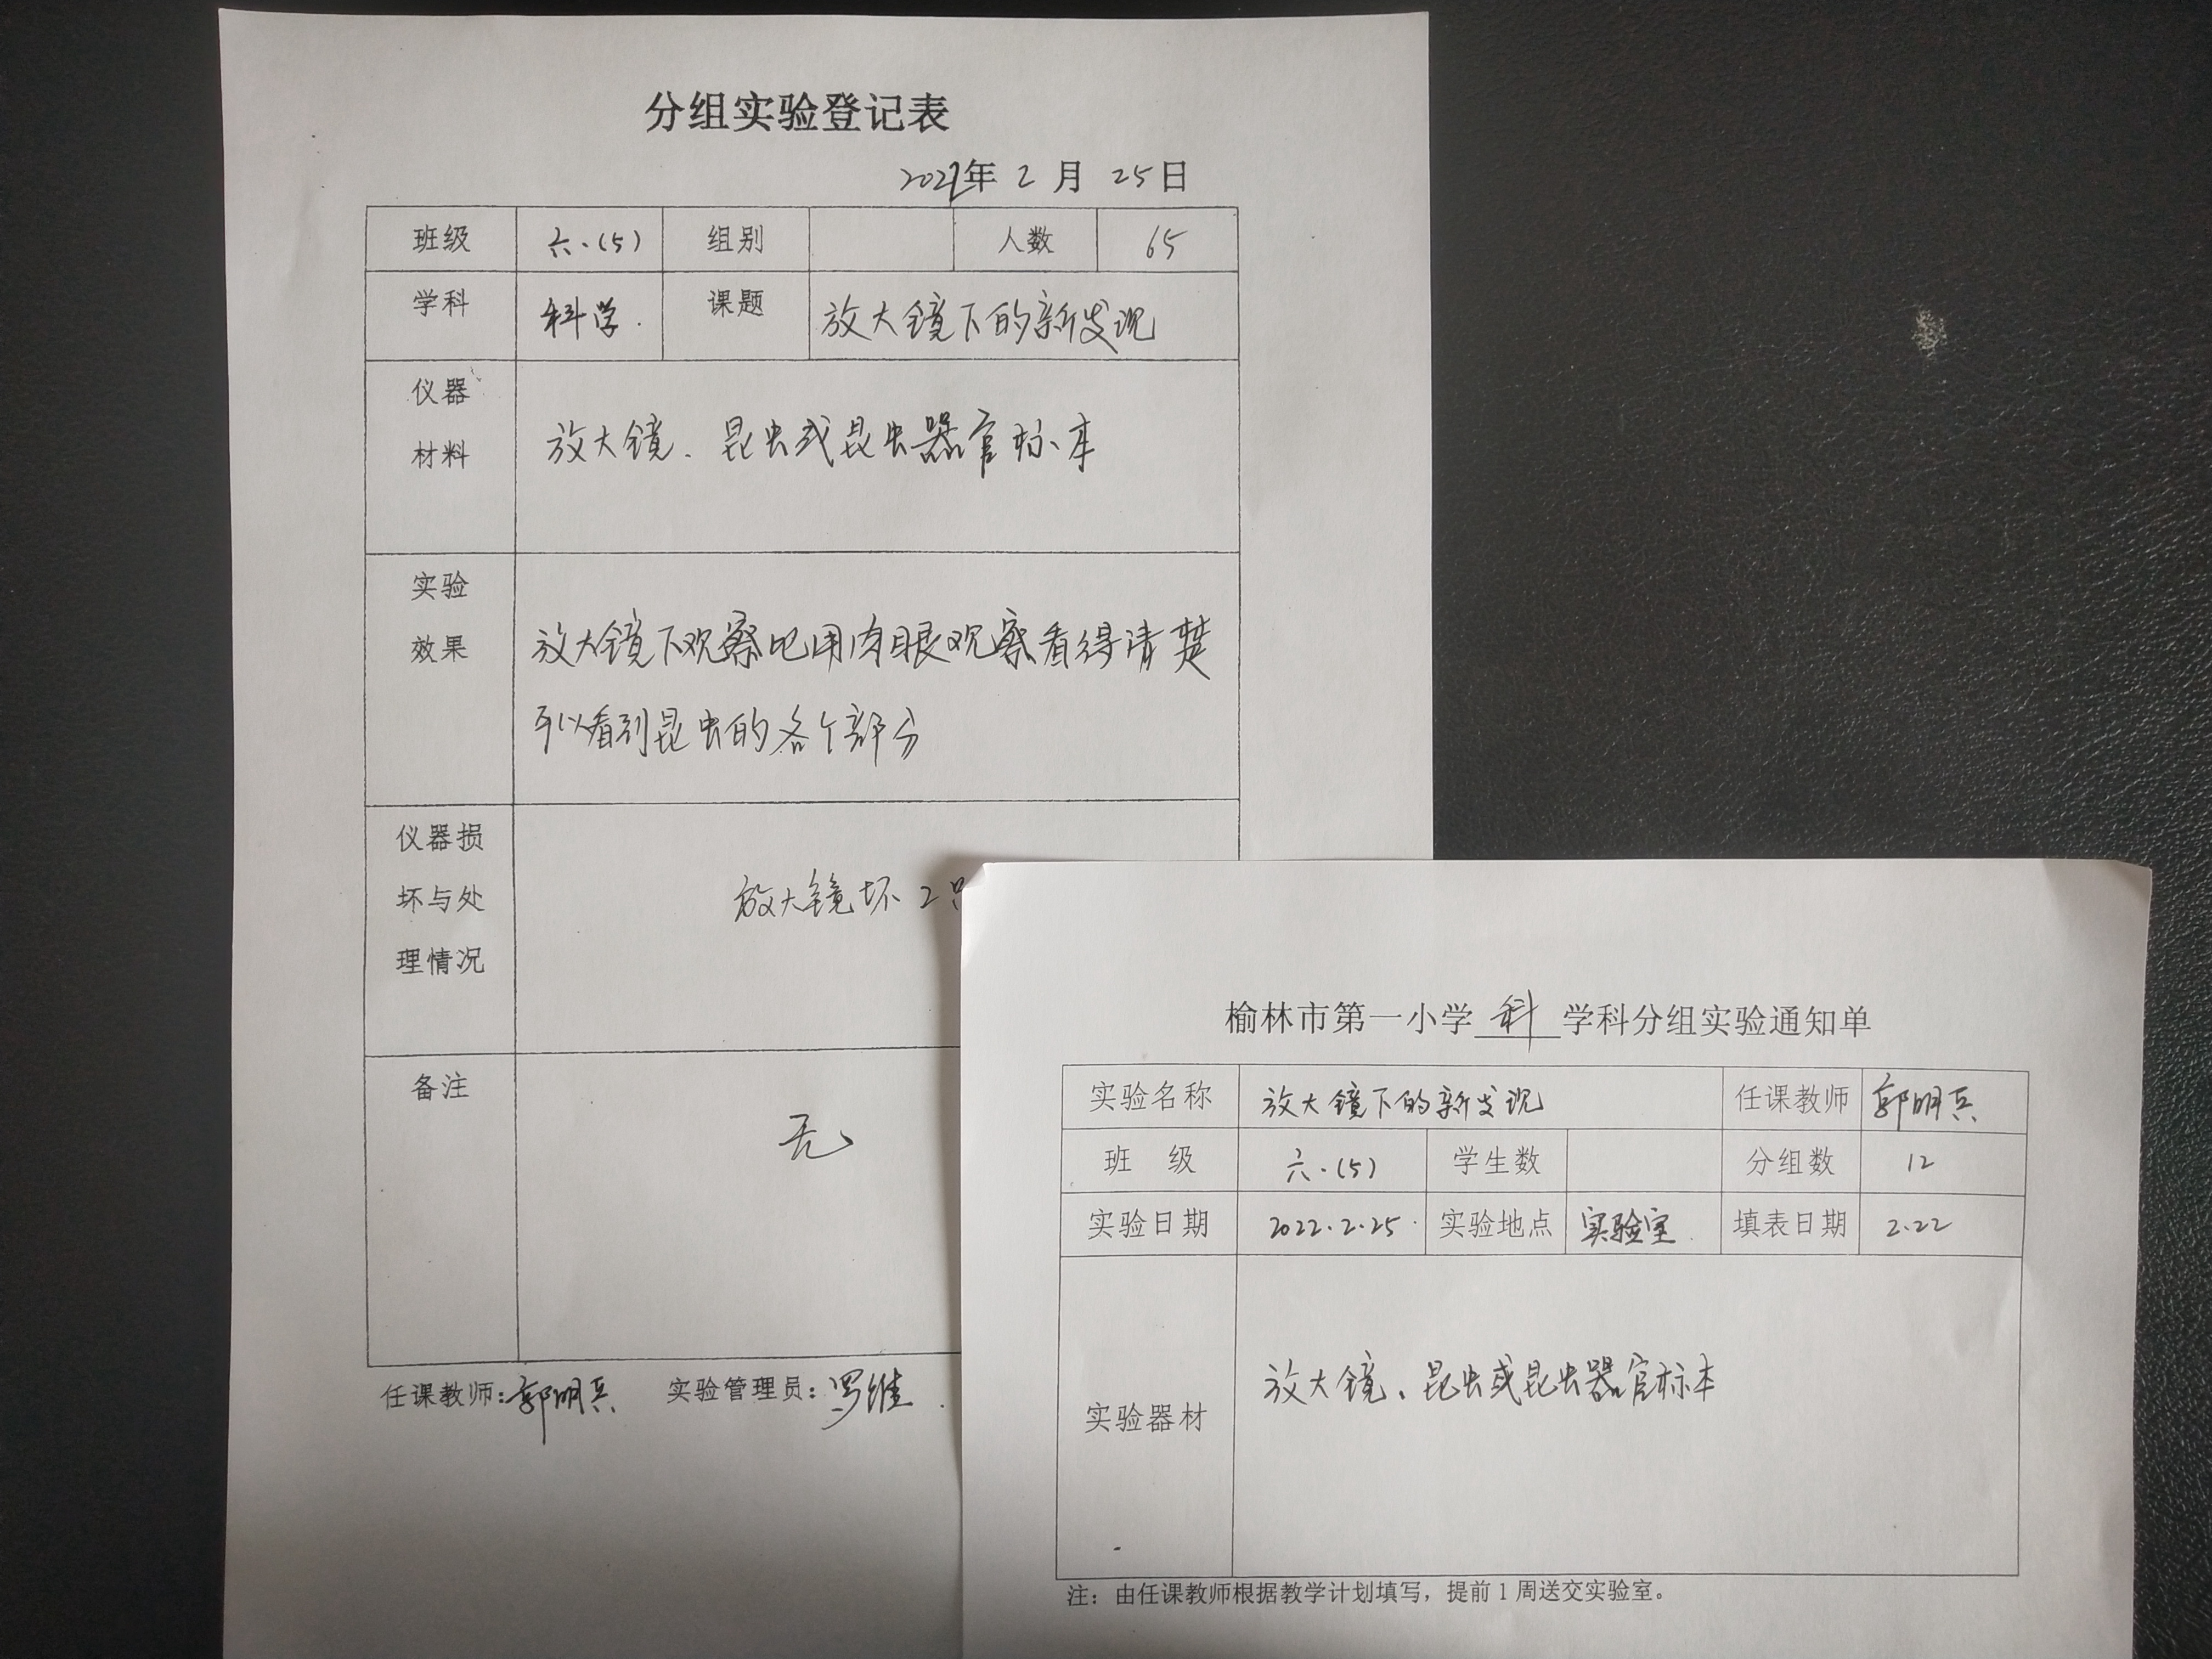 分组实验登记表
2022年 2 月 25日
班级 六.(5) 组别 人数 65
学科 科学. 课题 放大镜下的新发现
仪器
材料
放大镜、昆虫或昆虫器官标本
实验
效果
放大镜下观察比用肉眼观察看得清楚
可以看到昆虫的各个部分
仪器损
坏与处
理情况
放大镜坏2只
备注
无
任课教师:郭明兵 实验管理员:罗维.
榆林市第一小学 科 学科分组实验通知单
实验名称 放大镜下的新发现 任课教师 郭明兵
班 级 六.(5) 学生数 分组数 12
实验日期 2022.2.25. 实验地点 实验室. 填表日期 2.22
实验器材
放大镜、昆虫或昆虫器官标本
注：由任课教师根据教学计划填写，提前1周送交实验室。